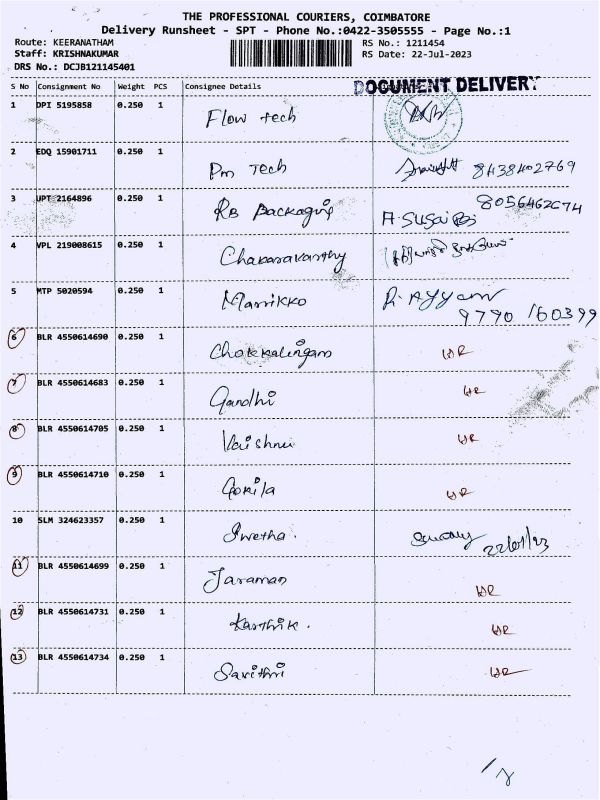 THE PROFESSIONAL COURIERS, COIMBATORE
Delivery Runsheet - SPT - Phone No.:0422-3505555 - Page No.:1
Route: KEERANATHAM RS No.: 1211454
Staff: KRISHNAKUMAR RS Date: 22-Jul-2023
DRS No.: DCJB121145401
DOCUMENT DELIVERY
S No Consignment No Weight PCS Consignee Details
1 DPI 5195858 0.250 1 Flow tech
2 EDQ 15901711 0.250 1 Pm Tech 8438402769
3 UPT 2164896 0.250 1 RB Packaging A. SUSai 8056462674
4 VPL 219008615 0.250 1 Chakaravarthy
5 MTP 5020594 0.250 1 Marrikko R. Ayyam
9790 160399
6 BLR 4550614690 0.250 1 Chokkalingam HR
7 BLR 4550614683 0.250 1 Gandhi HR
8 BLR 4550614705 0.250 1 Vaishnu HR
9 BLR 4550614710 0.250 1 Gokila HR
10 SLM 324623357 0.250 1 Swetha.
11 BLR 4550614699 0.250 1 Jaraman HR
12 BLR 4550614731 0.250 1 Karthik. HR
13 BLR 4550614734 0.250 1 Savithri HR